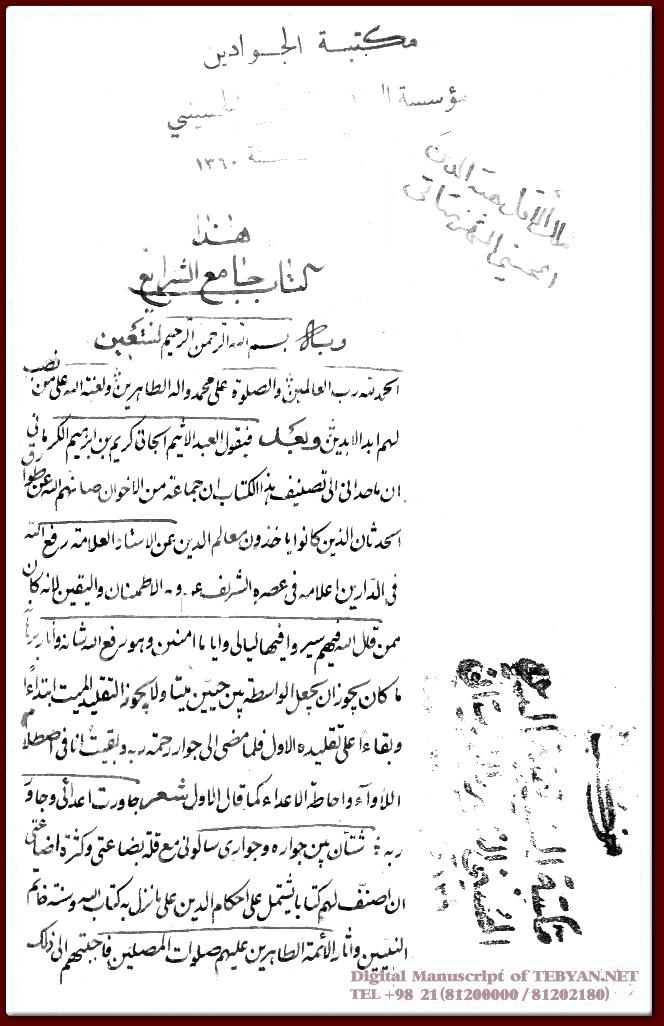 مكتبة الجوادين
مؤسسة
الحسيني
سنة ١٣٦٠
هذا
كتاب جامع الشرايع
وبه بسم الله الرحمن الرحيم نستعين
الحمد لله رب العالمين والصلوة على محمد واله الطاهرين ولعنة الله على من نصب
لهم ابد الابدين وبعد فيقول العبد الاثيم الجاني كريم بن ابرهيم الكرماني
ان ما حداني الى تصنيف هذا الكتاب ان جماعة من الاخوان صانهم الله عن طوارق
الحدثان الذين كانوا ياخذون معالم الدين عن الاستاد العلامة رفع الله
في الدارين اعلامه في عصره الشريف الاطمنان واليقين لانه كان
ممن قال الله فيهم سيروا فيها ليالي واياما امنين وهو رفع الله شانه وانار برهانه
ما كان يجوز ان يجعل الواسطة بين حيين ميتا ولا يجوز التقليد للميت ابتداءا
وبقاءا على تقليده الاول فلما مضى الى جوار رحمة ربه وبقيت انا في اصطلام
اللأواء واحاطة الاعداء كما قال الاول شعر جاورت اعدائي وجاور
ربه شتان بين جواره وجواري سالوني مع قلة بضاعتي وكثرة اضاعتي
ان اصنف لهم كتابا يشتمل على احكام الدين على ما نزل به كتاب الله وسنة خاتم
النبيين واثار الأئمة الطاهرين عليهم صلوات المصلين فاجبتهم الى ذلك
مكتبة
Digital Manuscript of TEBYAN.NET
TEL +98 21(81200000 / 81202180)